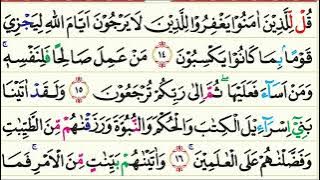 قُلْ لِّلَّذِيْنَ اٰمَنُوْا يَغْفِرُوْا لِلَّذِيْنَ لَا يَرْجُوْنَ اَيَّامَ اللّٰهِ لِيَجْزِيَ
قَوْمًاۢ بِمَا كَانُوْا يَكْسِبُوْنَ ١٤ مَنْ عَمِلَ صَالِحًا فَلِنَفْسِهٖۚ
وَمَنْ اَسَاۤءَ فَعَلَيْهَاۖ ثُمَّ اِلٰى رَبِّكُمْ تُرْجَعُوْنَ ١٥ وَلَقَدْ اٰتَيْنَا
بَنِيْٓ اِسْرَاۤءِيْلَ الْكِتٰبَ وَالْحُكْمَ وَالنُّبُوَّةَ وَرَزَقْنٰهُمْ مِّنَ الطَّيِّبٰتِ
وَفَضَّلْنٰهُمْ عَلَى الْعٰلَمِيْنَۚ ١٦ وَاٰتَيْنٰهُمْ بَيِّنٰتٍ مِّنَ الْاَمْرِۚ فَمَا